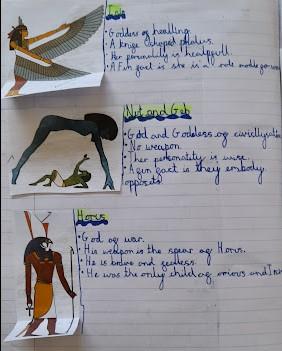 Isis
· Goddess of healling.
· A knife
· Her personality is
· A Fun fact is she is a role modle
Nut and Geb
· God and Goddess of
· No weapon.
· Ther personality is wise.
· A fun fact is they embody
opposits
Horus
· God of war.
· His weapon is the spear of Horus.
· He is brave and feerless.
· He was the only child of and